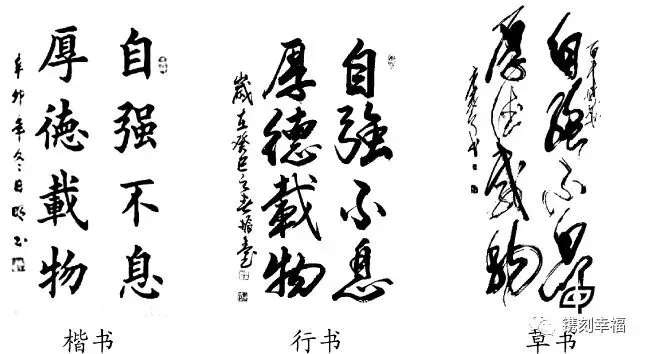 自强不息
厚德載物
辛卯年冬日
楷书
自強不息
厚德載物
歲在癸巳之春
行书
自強不息
厚德載物
草书
镌刻幸福